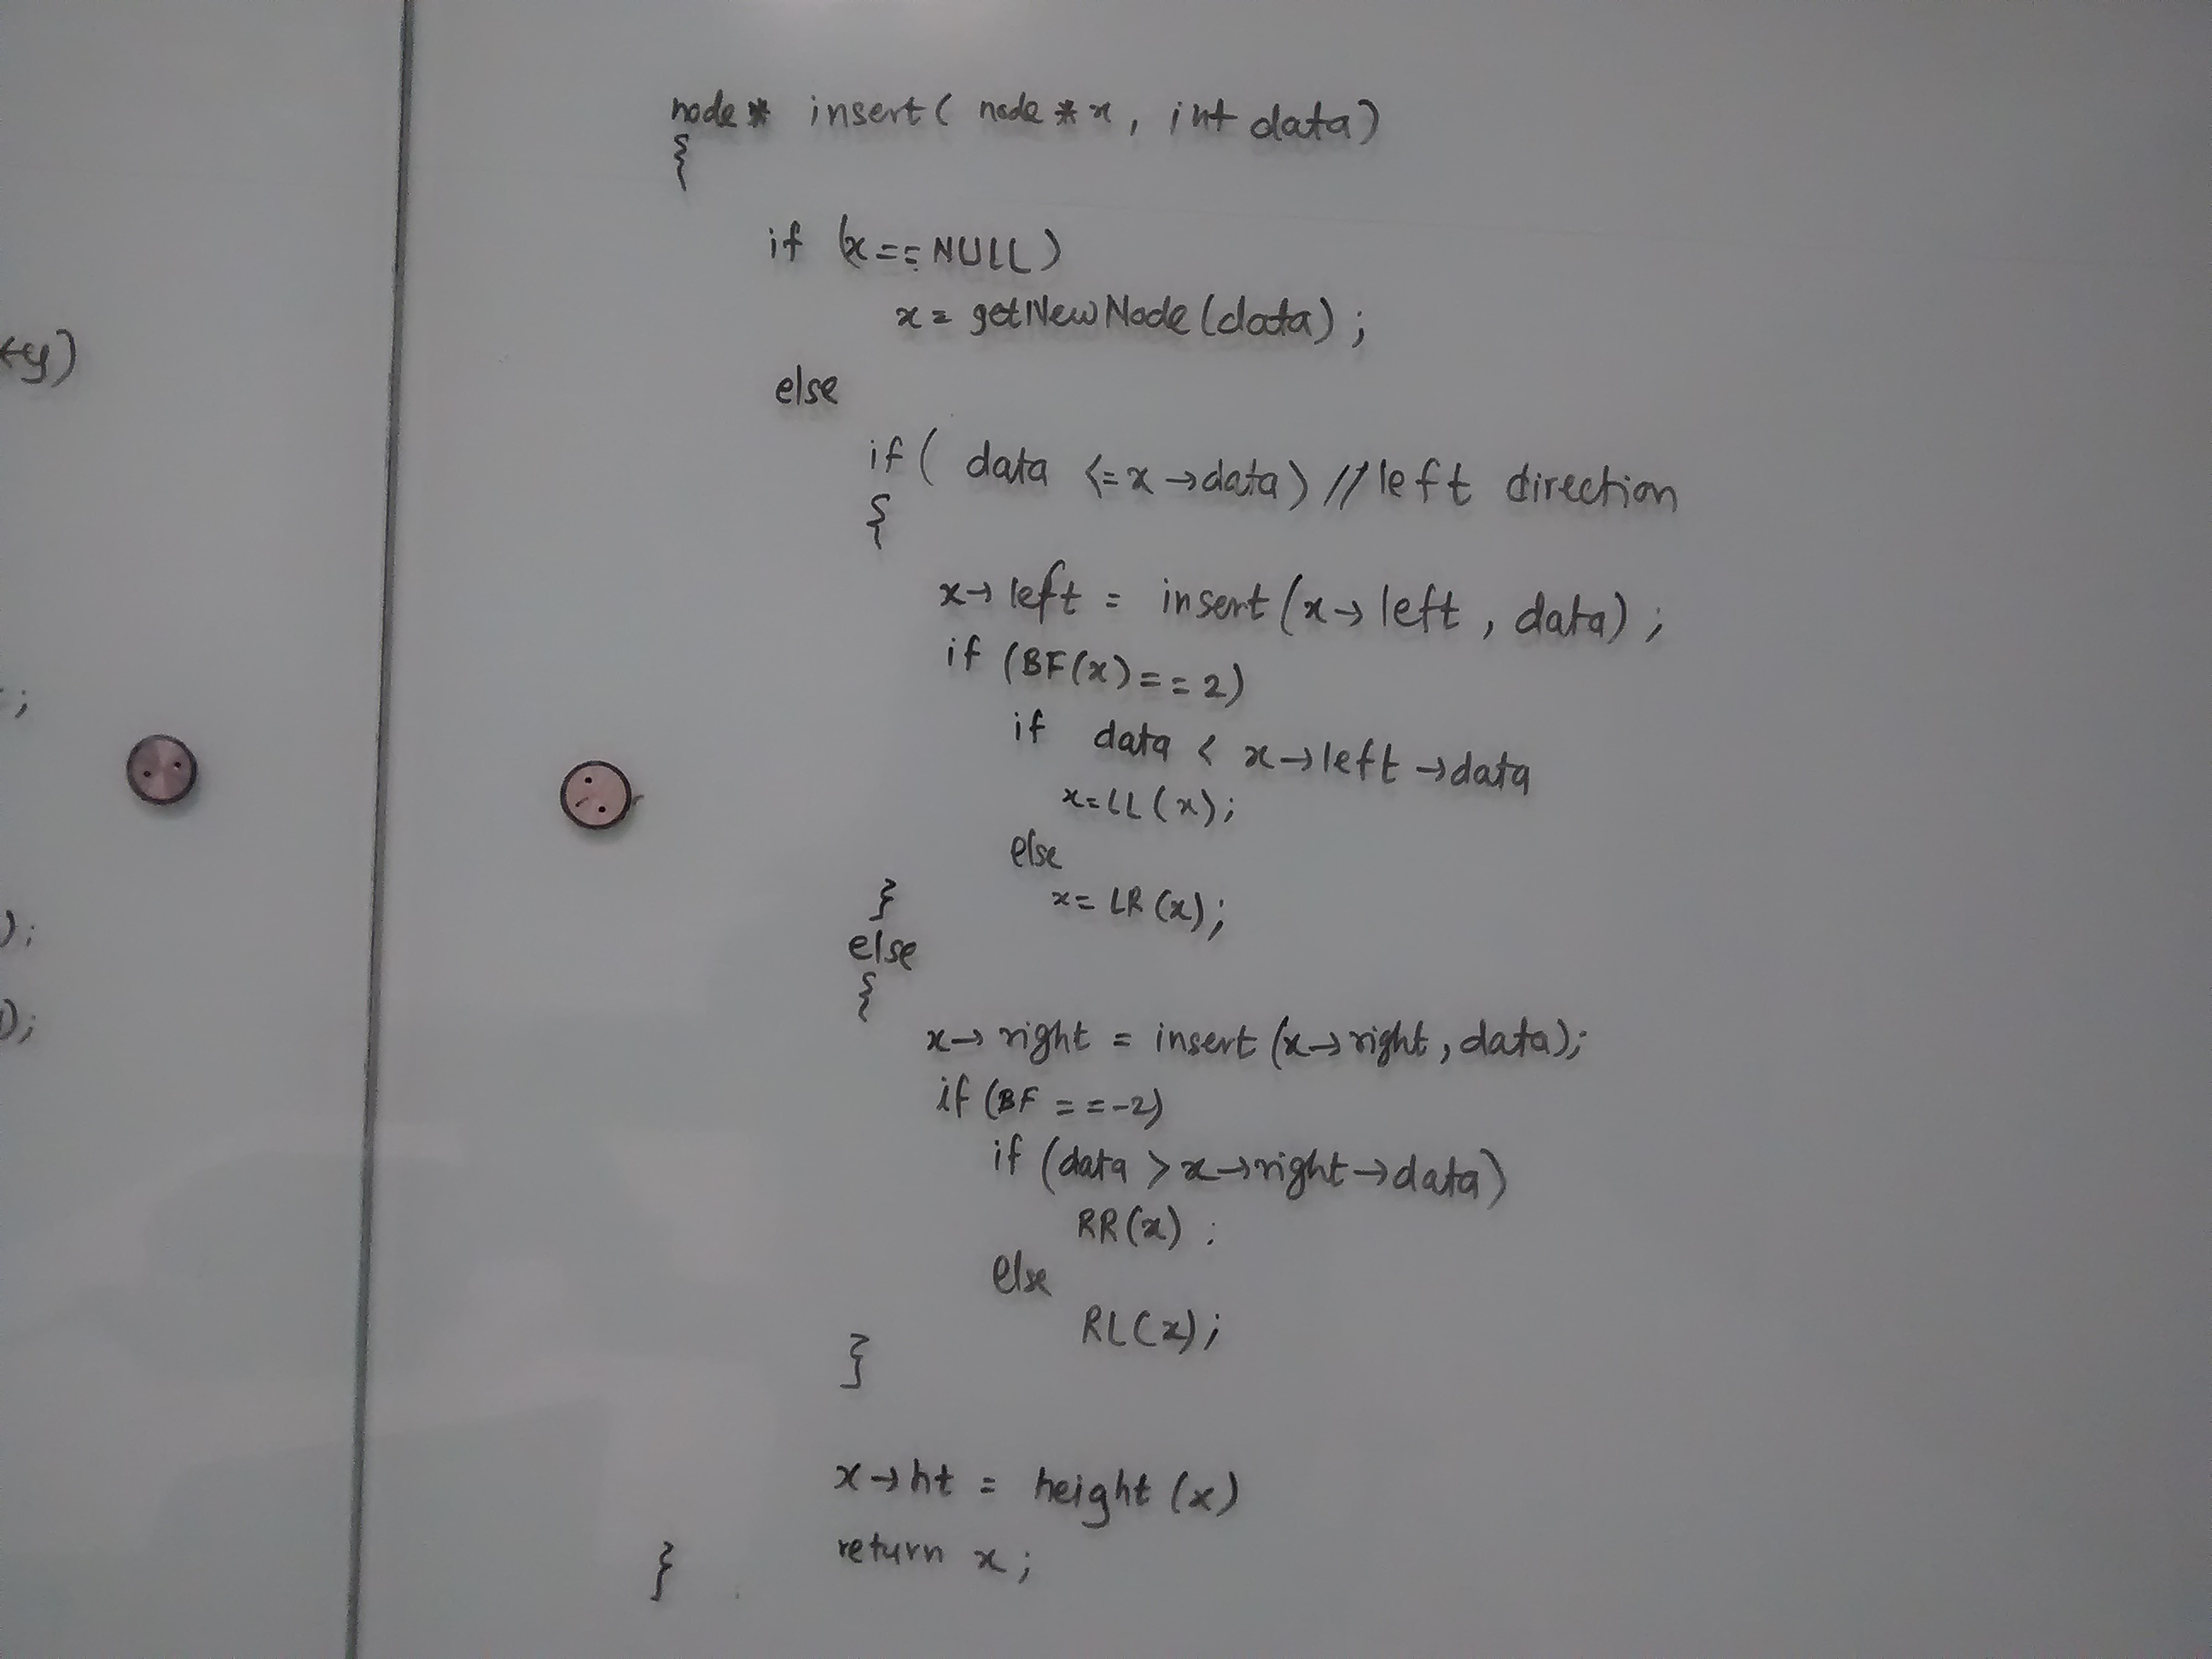 node* insert( node *x, int data)
{
if (x==NULL)
x= getNewNode(data);
else
if( data <=x→data) //left direction
{
x→left = insert(x→left, data);
if (BF(x)==2)
if data < x→left→data
x=LL(x);
else
x= LR(x);
}
else
{
x→right = insert(x→right,data);
if (BF ==-2)
if (data > x→right→data)
RR(x) :
else
RL(x);
}
x→ht = height (x)
return x;
}
y)
;
);
);